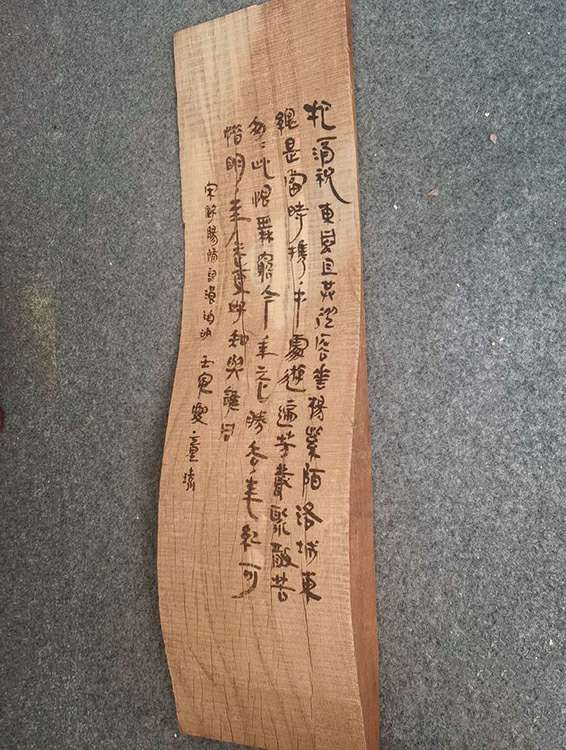 把酒祝東風且共從容垂楊紫陌洛城東
總是當時攜手處遊遍芳叢聚散苦
匆〻此恨無窮今年花勝去年紅可
惜明年花更好知與誰同
宋歐陽脩詞浪淘沙 壬寅夏童